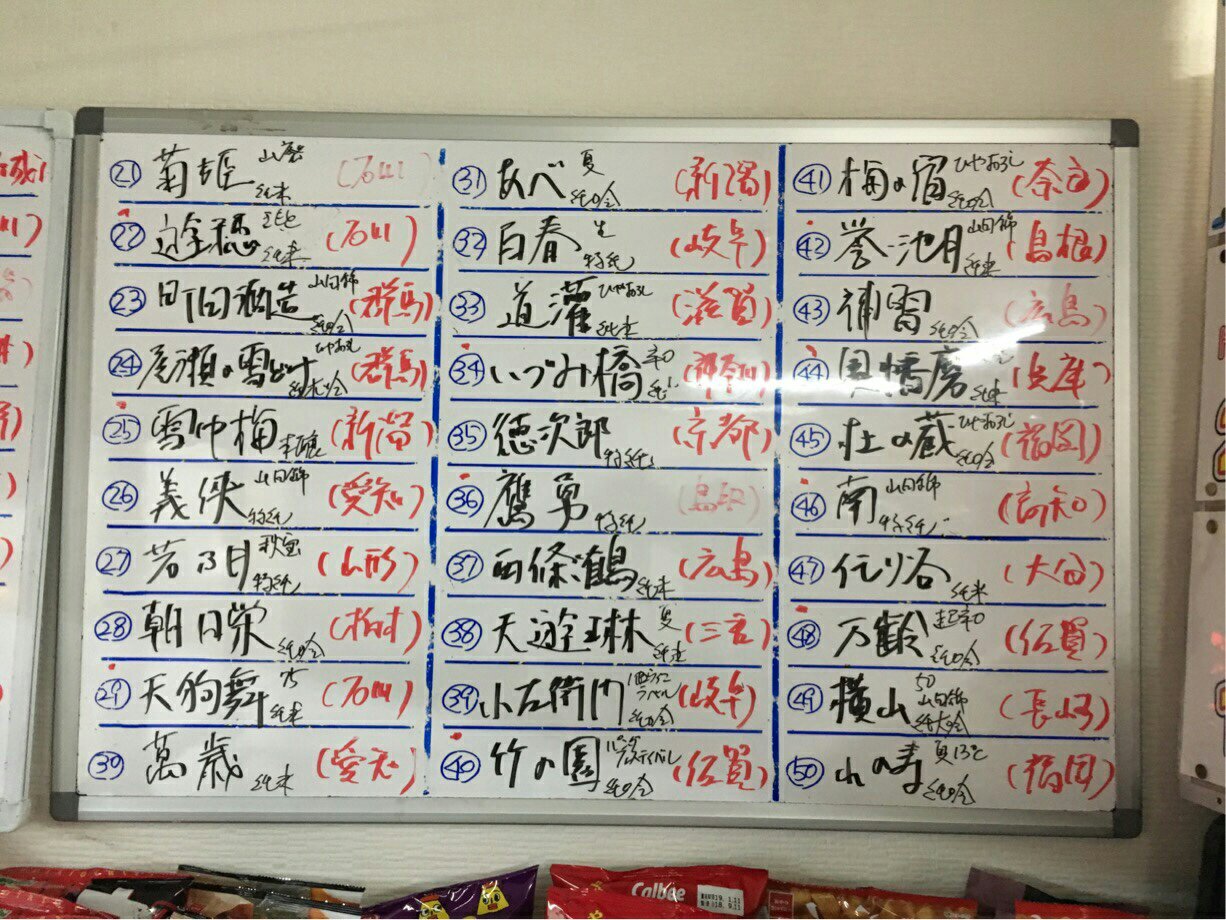 ㉑ 菊姫 山廃 純米 (石川)
㉒ 遊穂 純米 (石川)
㉓ 町田酒造 山田錦 純吟 (群馬)
㉔ 尾瀬の雪どけ ひやおろし 純大吟 (群馬)
㉕ 雪中梅 本醸 (新潟)
㉖ 義侠 山田錦 特純 (愛知)
㉗ 若乃井 秋宴 特純 (山形)
㉘ 朝日栄 純吟 (栃木)
㉙ 天狗舞 75 純米 (石川)
㉚ 萬歳 純米 (愛知)
㉛ あべ 夏 純吟 (新潟)
㉜ 百春 生 特純 (岐阜)
㉝ 道灌 ひやおろし 純米 (滋賀)
㉞ いづみ橋 純 (神奈川)
㉟ 徳次郎 特純 (京都)
㊱ 鷹勇 特純 (鳥取)
㊲ 西條鶴 純米 (広島)
㊳ 天遊琳 夏 純米 (三重)
㊴ 小左衛門 ラベル 純吟 (岐阜)
㊵ 竹の園 純吟 (佐賀)
㊶ 梅の宿 ひやおろし 純吟 (奈良)
㊷ 誉池月 山田錦 純米 (島根)
㊸ 純吟 (広島)
㊹ 純米 (兵庫)
㊺ 杜の蔵 ひやおろし 純吟 (福岡)
㊻ 南 山田錦 特純 (高知)
㊼ 純米 (大分)
㊽ 万齢 超辛口 純吟 (佐賀)
㊾ 横山 50 山田錦 純大吟 (長崎)
㊿ 山の寿 夏13℃ 純吟 (福岡)
Calbee